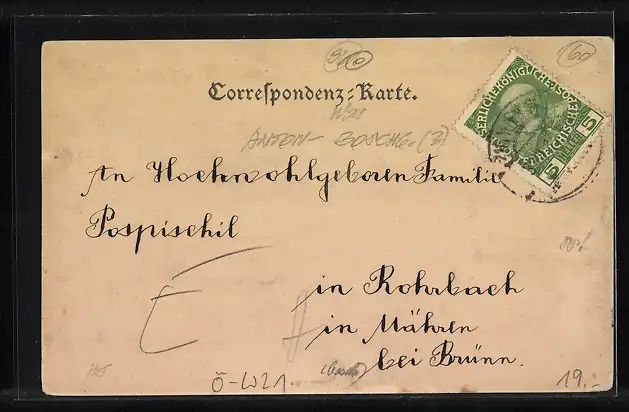 60
Correspondenz-Karte.
W21
ANTON-BOSCHG. (?)
KAISERLICHE KÖNIGLICHE ÖSTERREICHISCHE POST
5 5
An Hochwohlgeboren Familie
Pospischil
in Rohrbach
in Mähren
bei Brünn.
Ö-W21
19.-